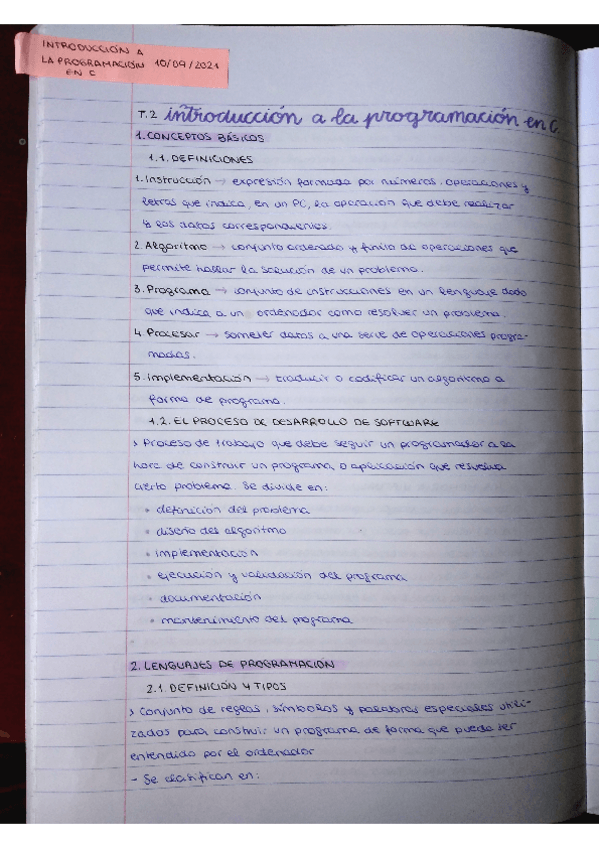 INTRODUCCIÓN A
LA PROGRAMACIÓN 10/09/2021
EN C
T.2 introducción a la programación en C
1. CONCEPTOS BÁSICOS
1.1. DEFINICIONES
1. Instrucción → expresión formada por números, operaciones y
letras que indica, en un PC, la operación que debe realizar
y los datos correspondientes.
2. Algoritmo → conjunto ordenado y finito de operaciones que
permite hallar la solución de un problema.
3. Programa → conjunto de instrucciones en un lenguaje dado
que indica a un ordenador como resolver un problema.
4. Procesar → someter datos a una serie de operaciones progra-
madas.
5. Implementación → traducir o codificar un algoritmo a
forma de programa.
1.2. EL PROCESO DE DESARROLLO DE SOFTWARE
> Proceso de trabajo que debe seguir un programador a la
hora de construir un programa o aplicación que resuelva
cierto problema. Se divide en:
• definición del problema
• diseño del algoritmo
• implementación
• ejecución y validación del programa
• documentación
• mantenimiento del programa
2. LENGUAJES DE PROGRAMACIÓN
2.1. DEFINICIÓN Y TIPOS
> Conjunto de reglas, símbolos y palabras especiales utili-
zados para construir un programa de forma que pueda ser
entendido por el ordenador
- Se clasifican en: